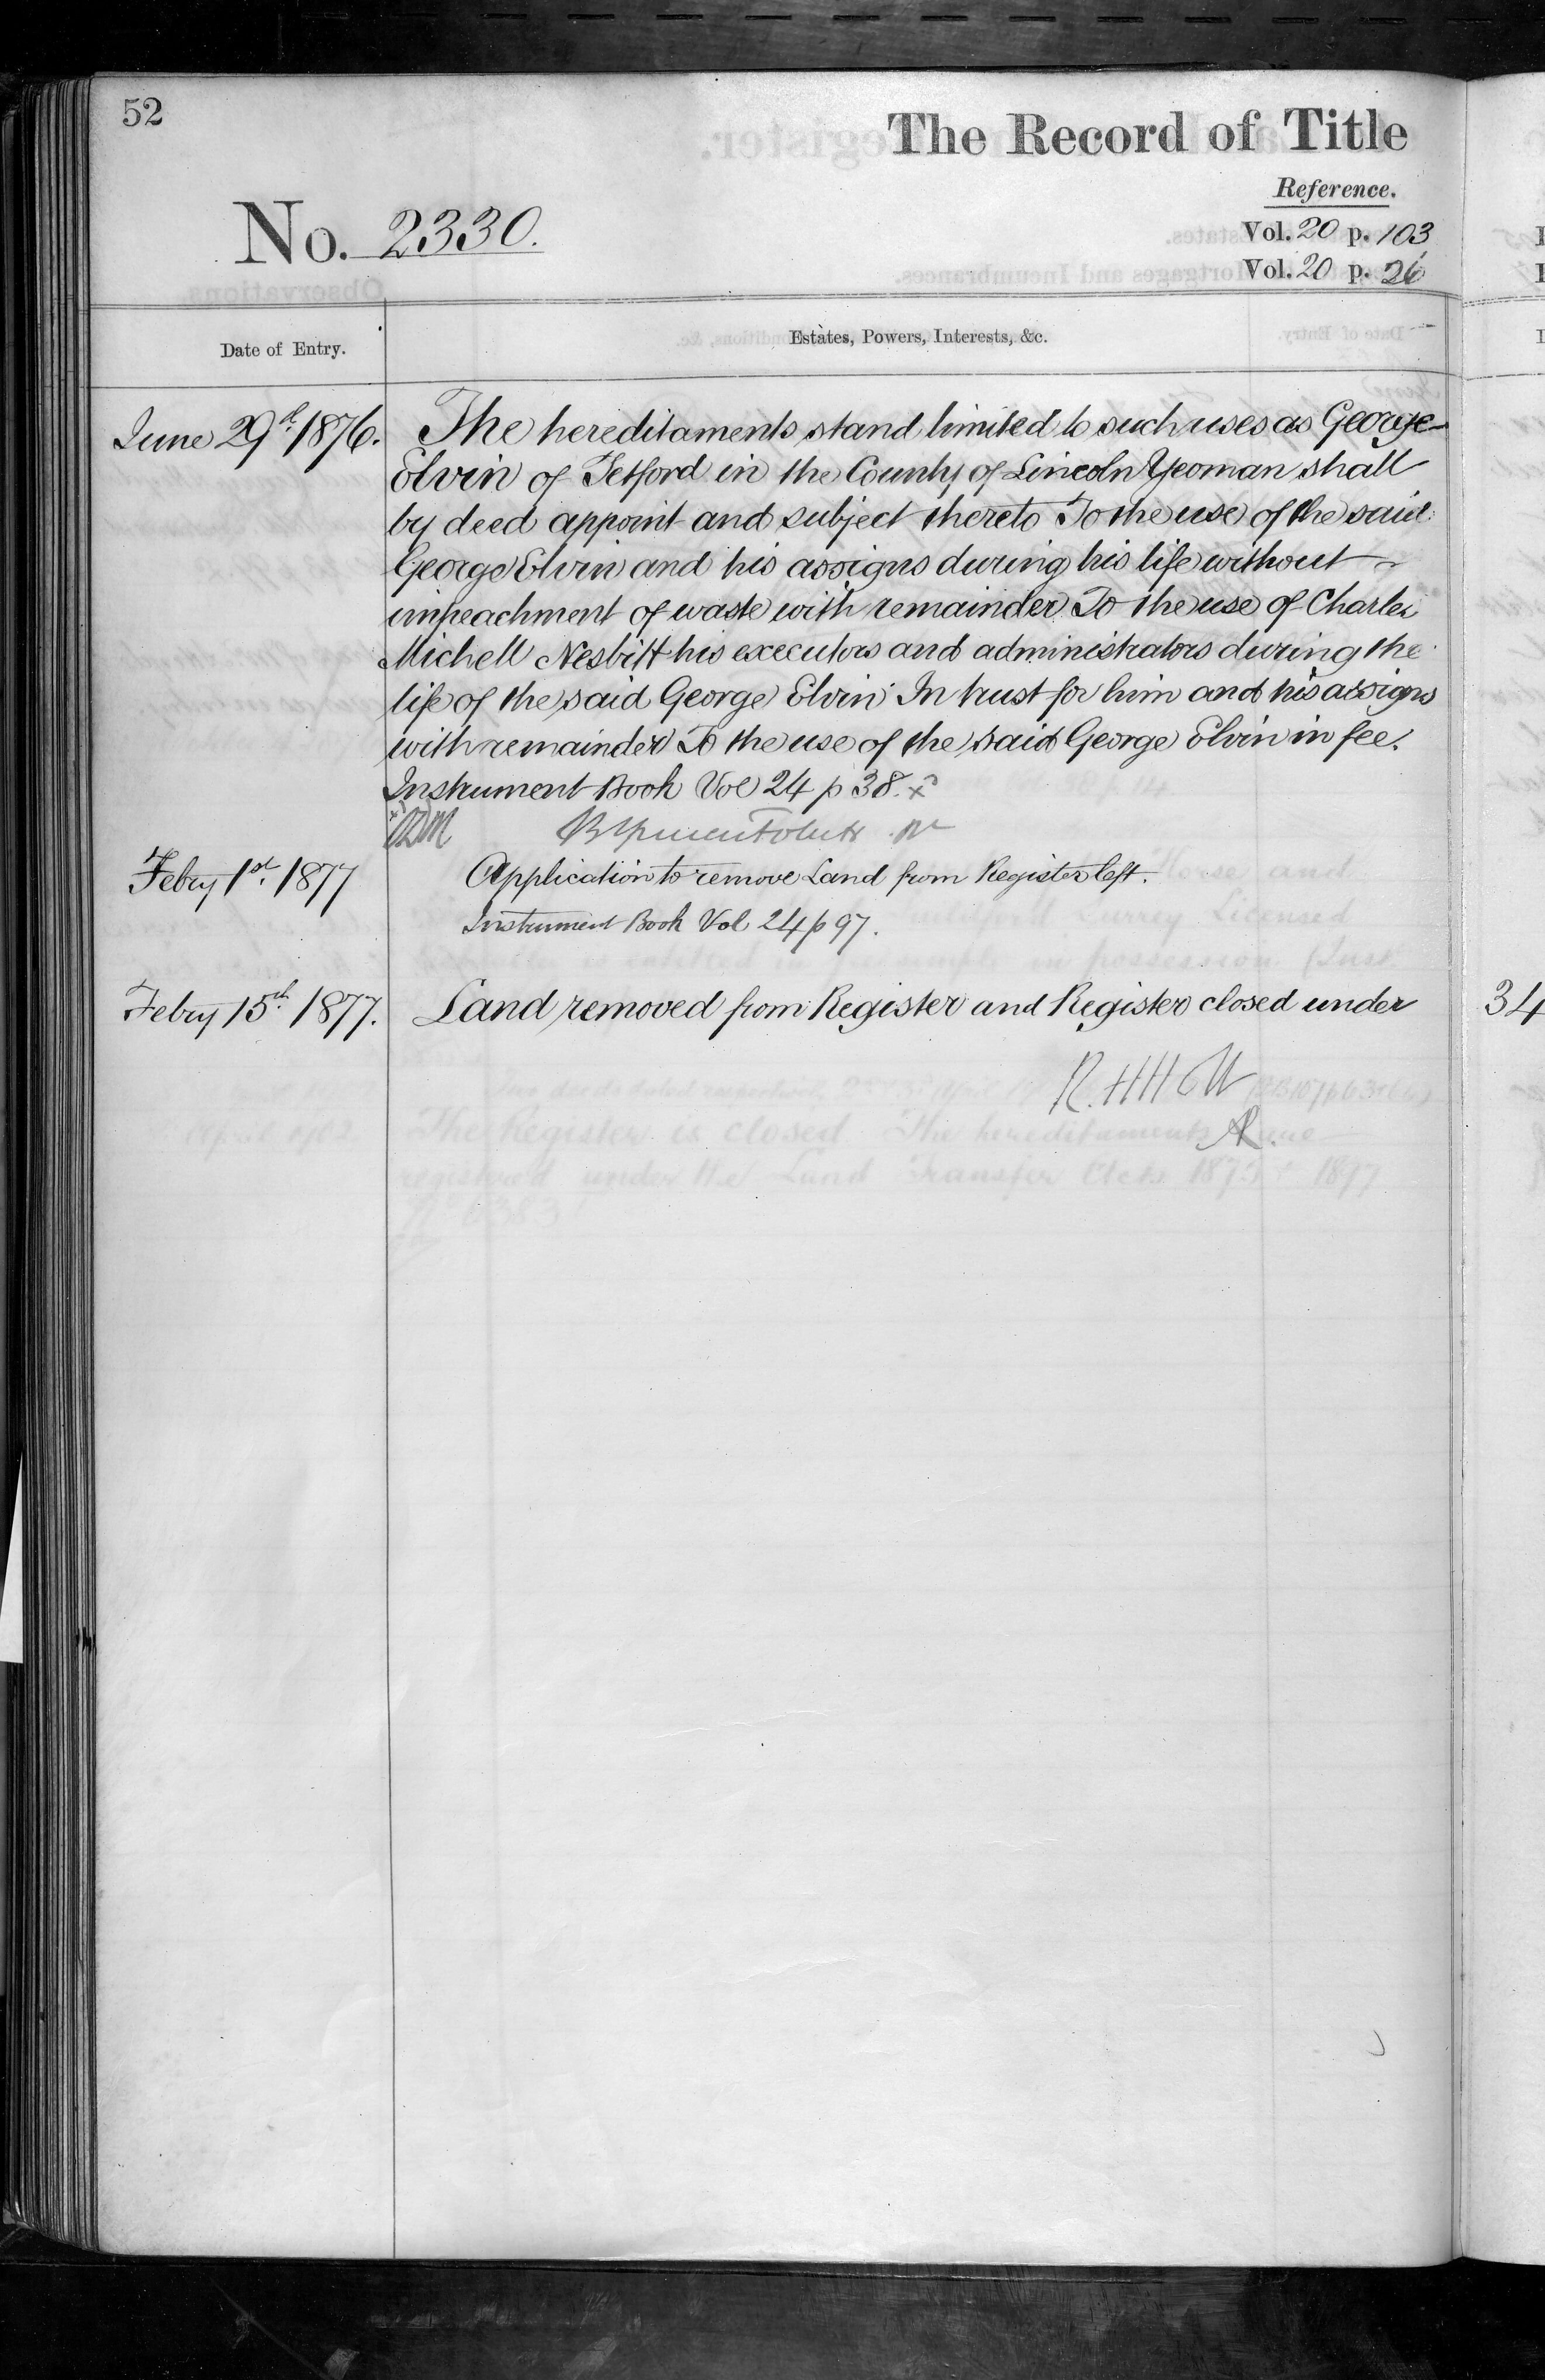 52
The Record of Title
Reference.
No. 2330.
Vol. 20 p. 103
Vol. 20 p. 26
Date of Entry.
Estates, Powers, Interests, &c.
June 29th 1876.
The hereditaments stand limited to such uses as George
Elvin of Tetford in the County of Lincoln Yeoman shall
by deed appoint and subject thereto To the use of the said
George Elvin and his assigns during his life without
impeachment of waste with remainder To the use of Charles
Michell Nesbitt his executors and administrators during the
life of the said George Elvin In trust for him and his assigns
with remainder To the use of the said George Elvin in fee.
Instrument Book Vol 24 p 38.
Febry 1st. 1877
Application to remove Land from Register left.
Instrument Book Vol 24 p 97.
Febry 15th 1877.
Land removed from Register and Register closed under
34